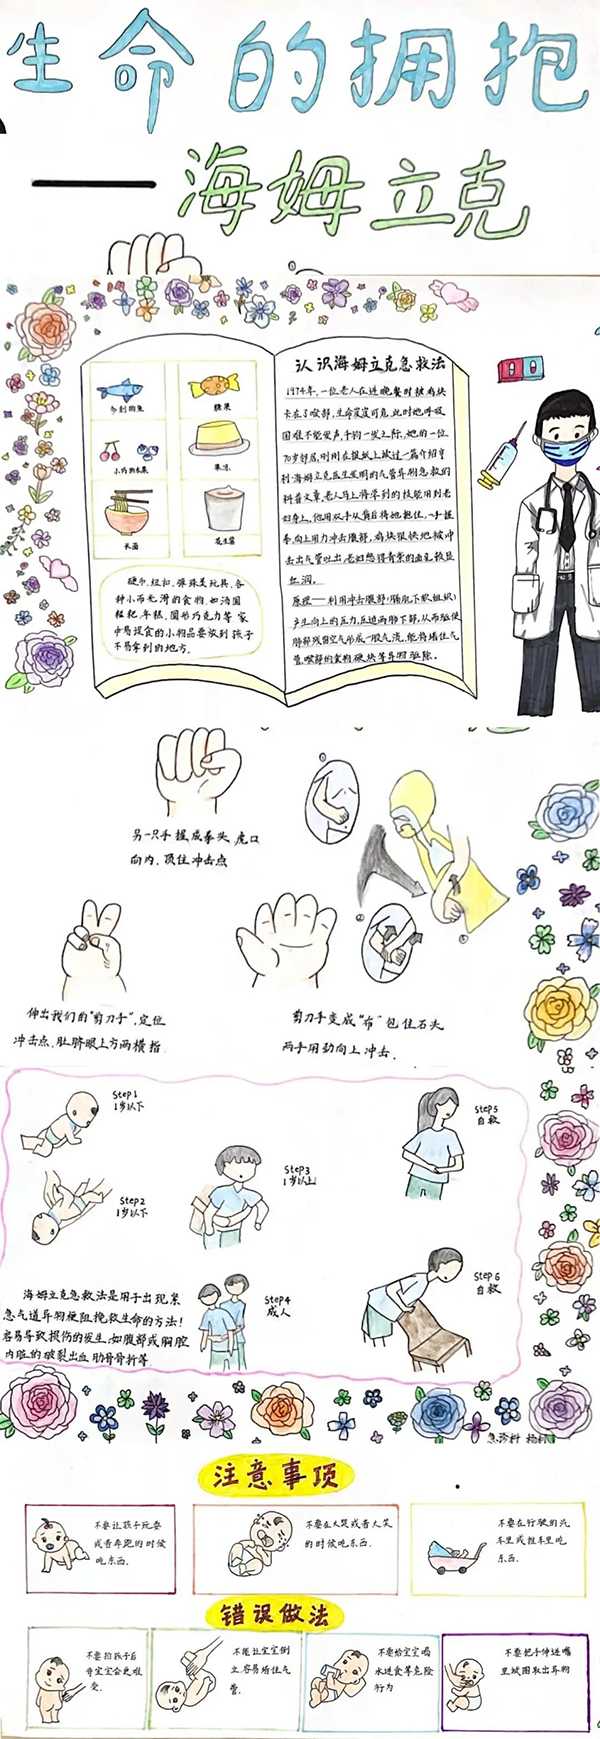 生命的拥抱
——海姆立克
多刺的鱼
糖果
小的水果
果冻
长面
花生酱
硬币,纽扣,弹珠类玩具,各
种小而光滑的食物,如汤圆
粑粑,年糕,圆形巧克力等家
中易误食的小物品要放到孩子
不易拿到的地方.
认识海姆立克急救法
1974年,一位老人在进晚餐时被鸡块
卡在了喉部,生命岌岌可危,此时她呼吸
困难不能发声,千钧一发之际,她的一位
70岁邻居,刚刚在报纸上读过一篇介绍亨
利·海姆立克医生发明的气管异物急救的
科普文章,老人马上将学到的技能用到老
妇身上,他用双手从背后将她抱住,一手握
拳,向上用力冲击腹部,鸡块很快地被冲
击出气管吐出,老妇憋得青紫的面色较显
红润.
原理——利用冲击腹部(膈肌下软组织)
产生向上的压力,压迫两肺下部,从而驱使
肺部残留空气形成一股气流,能将堵住气
管、喉部的食物硬块等异物驱除.
①
另一只手握成拳头,虎口
向内,顶住冲击点
②
③
伸出我们的“剪刀手”,定位
冲击点,肚脐眼上方两横指.
剪刀手变成“布”包住石头
两手用劲向上冲击.
Step1
1岁以下
Step2
1岁以下
Step3
1岁以上
Step4
成人
Step5
自救
Step6
自救
海姆立克急救法是用于出现紧
急气道异物梗阻挽救生命的方法!
容易导致损伤的发生,如腹部或胸腔
内脏的破裂出血,肋骨骨折等
急诊科
注意事项
不要让孩子玩耍
或者奔跑的时候
吃东西.
不要在大哭或者大笑
的时候吃东西.
不要在行驶的汽
车里或推车里吃
东西.
错误做法
不要拍孩子后
背宝宝会更难
受.
不能让宝宝倒
立容易堵住气
管.
不要给宝宝喝
水进食等危险
行为
不要把手伸进嘴
里试图取出异物